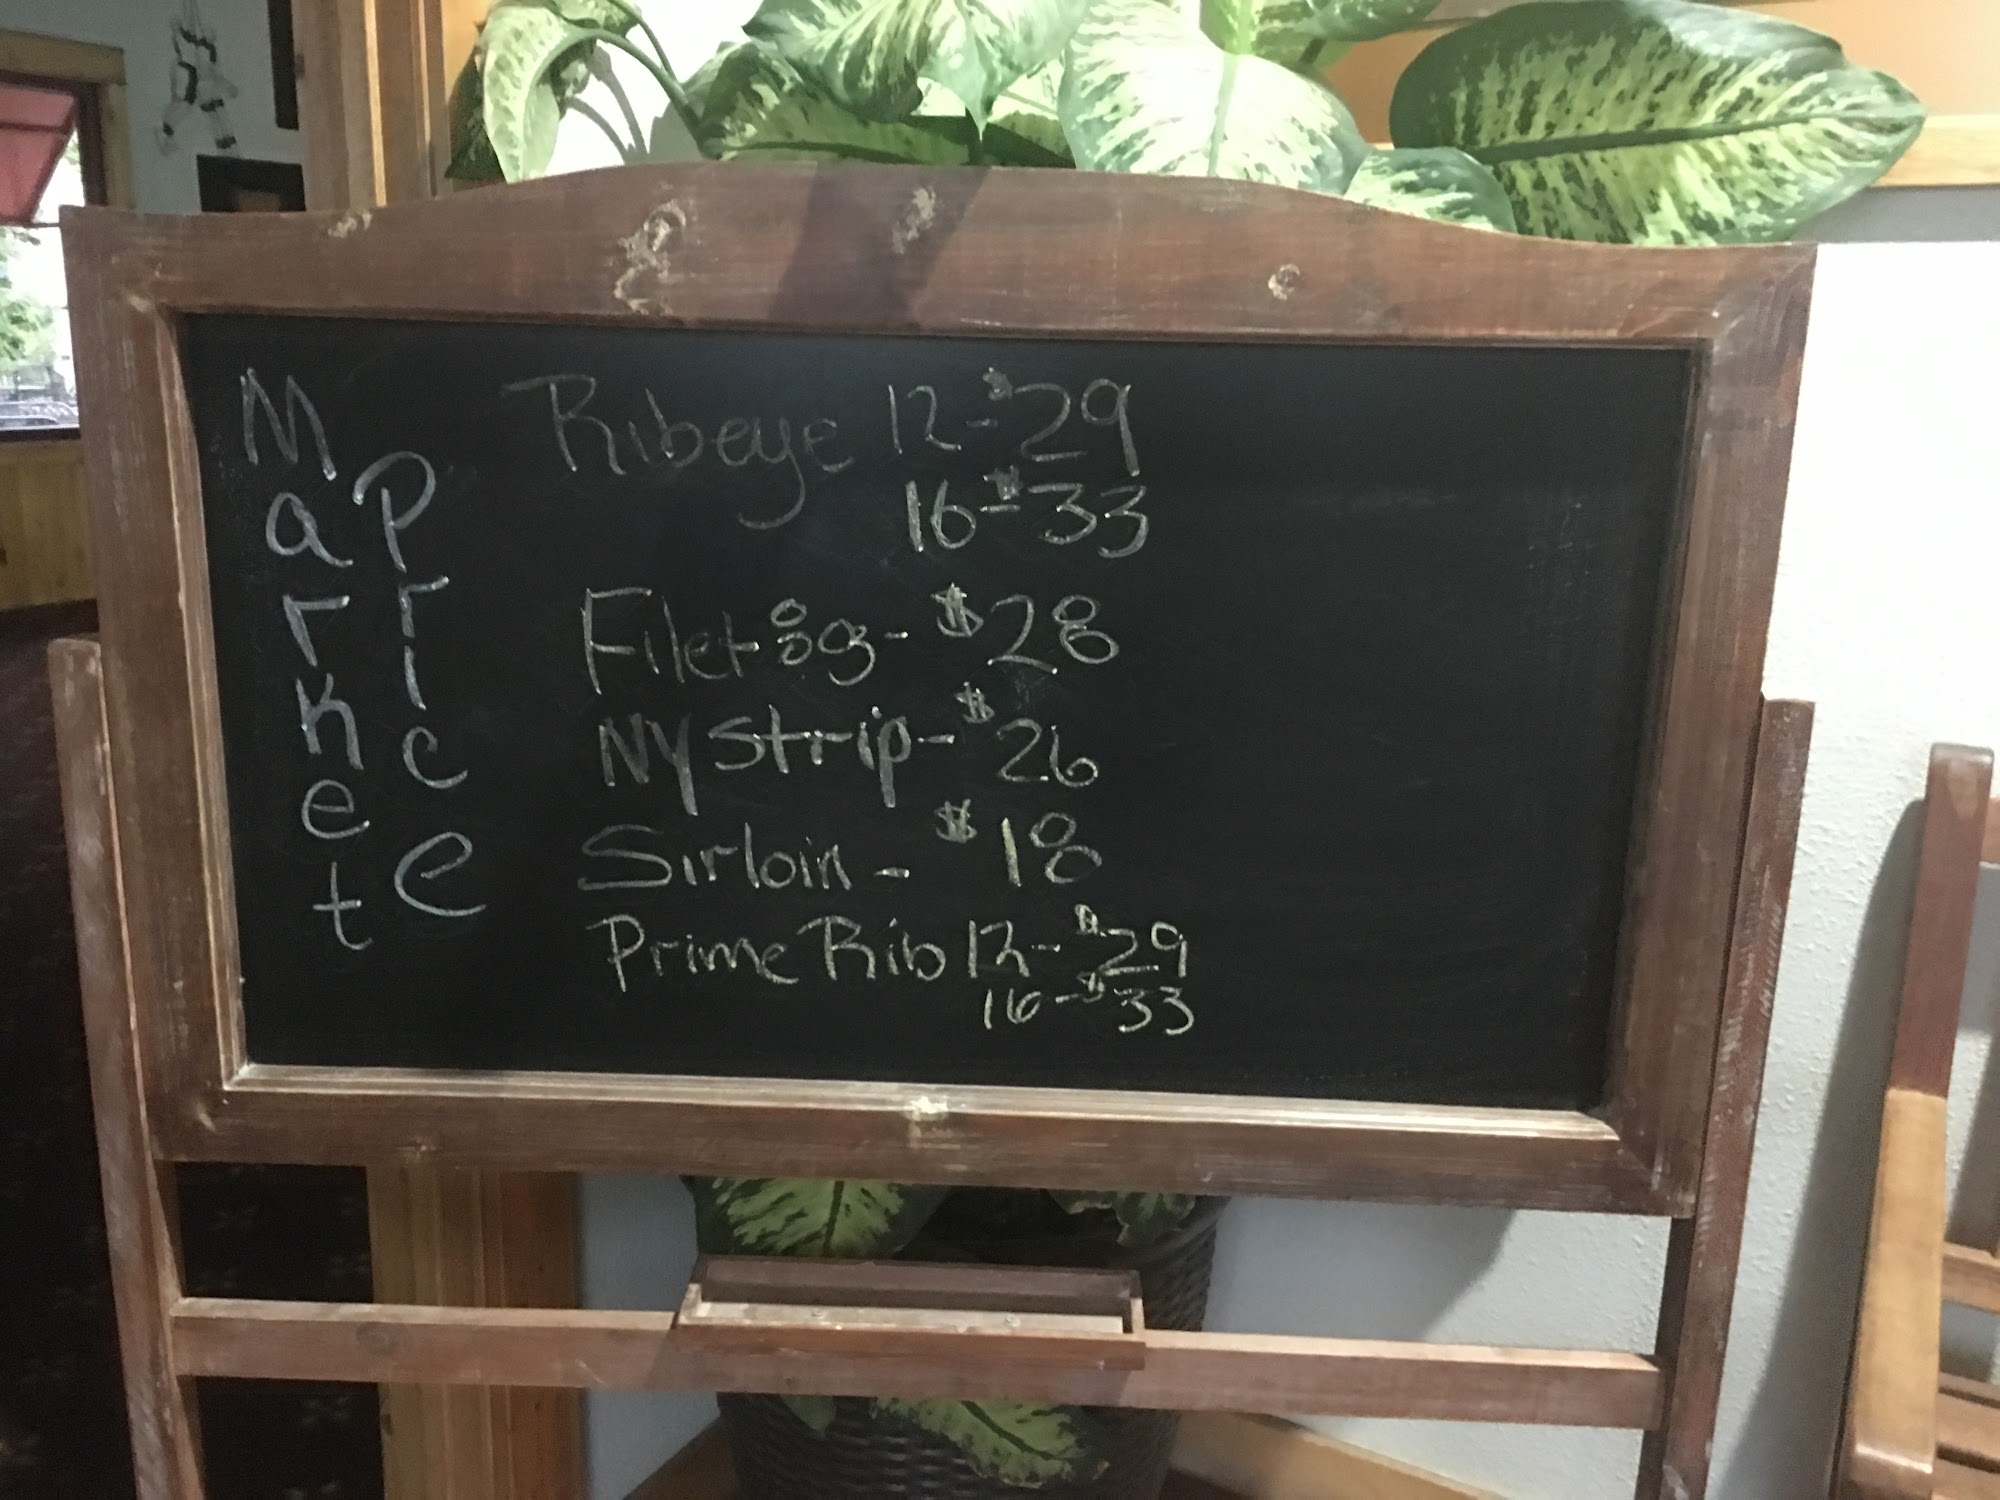 Market
Price
Ribeye 12-$29
16-$33
Filet 8 - $28
NY Strip- $26
Sirloin - $18
Prime Rib 12- $29
16-$33